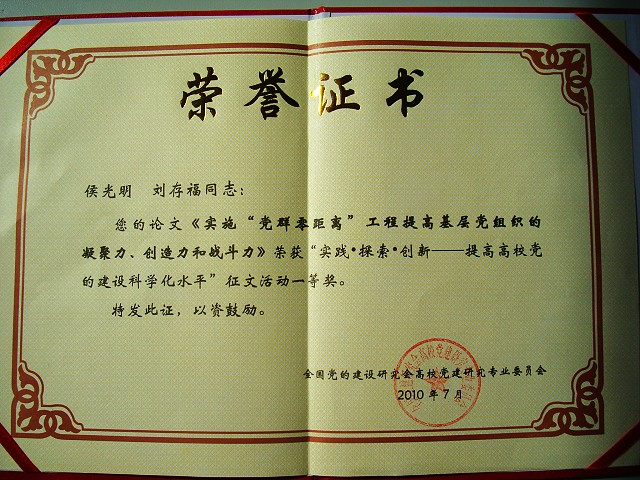 荣誉证书
侯光明 刘存福同志：
您的论文《实施“党群零距离”工程提高基层党组织的
凝聚力、创造力和战斗力》荣获“实践·探索·创新——提高高校党
的建设科学化水平”征文活动一等奖。
特发此证，以资鼓励。
全国党的建设研究会高校党建研究专业委员会
2010年7月